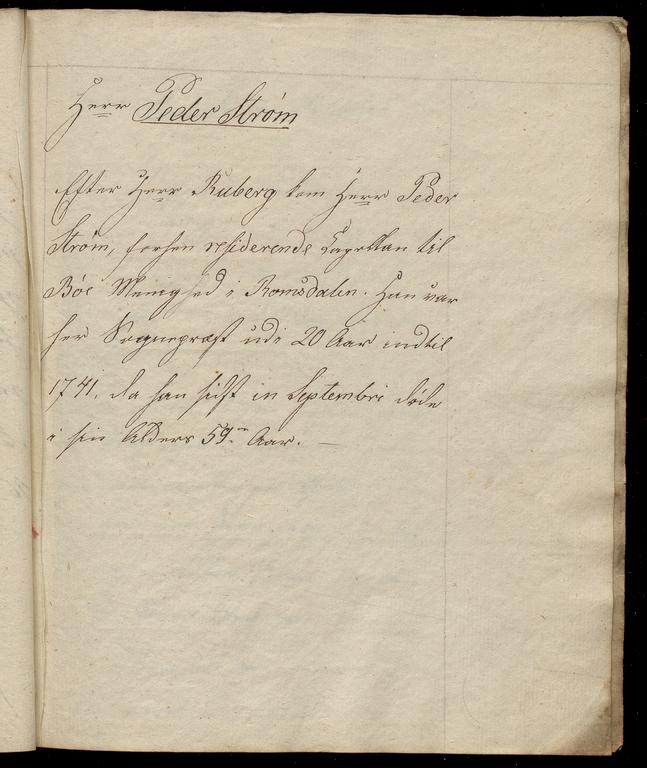 Herr Peder Strøm
Efter Herr Ruberg kom Herr Peder
Strøm, forhen residerende Capellan til
Bøe Menighed i Romsdalen. Han var
her Sognepræst udi 20 Aar indtil
1741, da han sidst in Septembri døde
i sin Alders 59de Aar. —